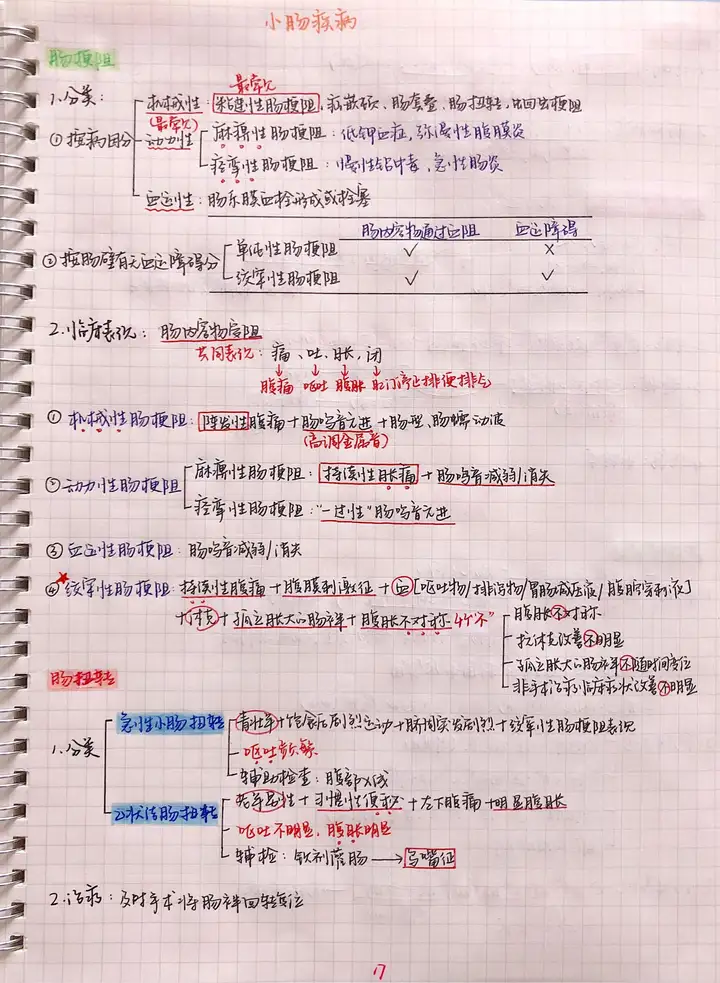 小肠疾病
肠梗阻
最常见
1.分类: 机械性: 粘连性肠梗阻, 疝嵌顿、肠套叠、肠扭转、蛔虫梗阻
(最常见)
①按病因分 动力性 麻痹性肠梗阻: 低钾血症, 弥漫性腹膜炎
痉挛性肠梗阻: 慢性铅中毒、急性肠炎
血运性: 肠系膜血栓形成或栓塞
肠内容物通过血阻 血运障碍
②按肠壁有无血运障碍分 单纯性肠梗阻 ✓ ×
绞窄性肠梗阻 ✓ ✓
2.临床表现: 肠内容物受阻
共同表现: 痛、吐、胀、闭
↓ ↓ ↓ ↓
腹痛 呕吐 腹胀 肛门停止排便排气
①机械性肠梗阻: 阵发性腹痛+肠鸣音亢进+肠型、肠蠕动波
(高调金属音)
②动力性肠梗阻 麻痹性肠梗阻: 持续性胀痛+肠鸣音减弱/消失
痉挛性肠梗阻: "一过性"肠鸣音亢进
③血运性肠梗阻: 肠鸣音减弱/消失
★④绞窄性肠梗阻: 持续性腹痛+腹膜刺激征+血[呕吐物/排泄物/胃肠减压液/腹腔穿刺液]
+休克+孤立胀大的肠袢+腹胀不对称 4个"不" 腹胀不对称
抗休克改善不明显
孤立胀大的肠袢不随时间移位
非手术治疗临床症状改善不明显
肠扭转
1.分类 急性小肠扭转 青壮年+饱餐后剧烈运动+脐周突发剧烈+绞窄性肠梗阻表现
呕吐频繁
辅助检查: 腹部X线
乙状结肠扭转 老年男性+习惯性便秘+左下腹痛+明显腹胀
呕吐不明显, 腹胀明显
辅检: 钡剂灌肠→鸟嘴征
2.治疗: 及时手术将肠袢回转复位
17